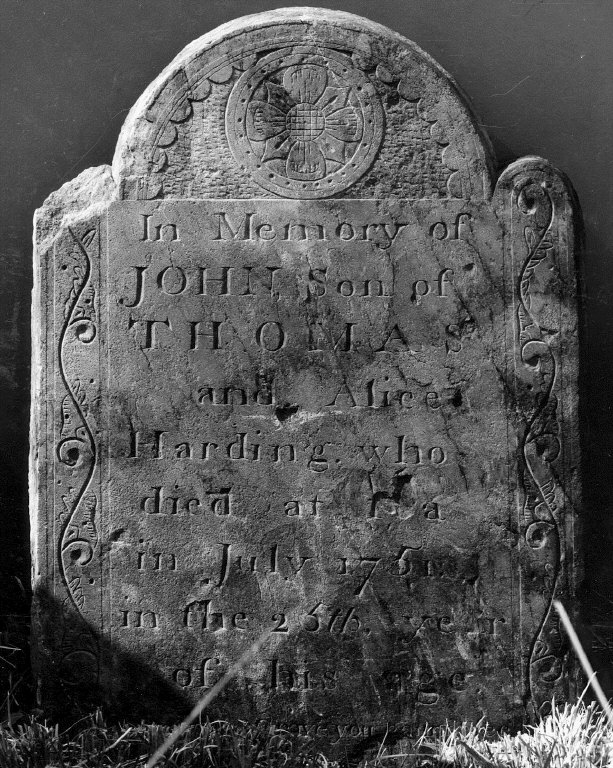 In Memory of
JOHN, Son of
THOMAS
and Alice
Harding, who
died at
in July
in the 26th, year
of his age.
you